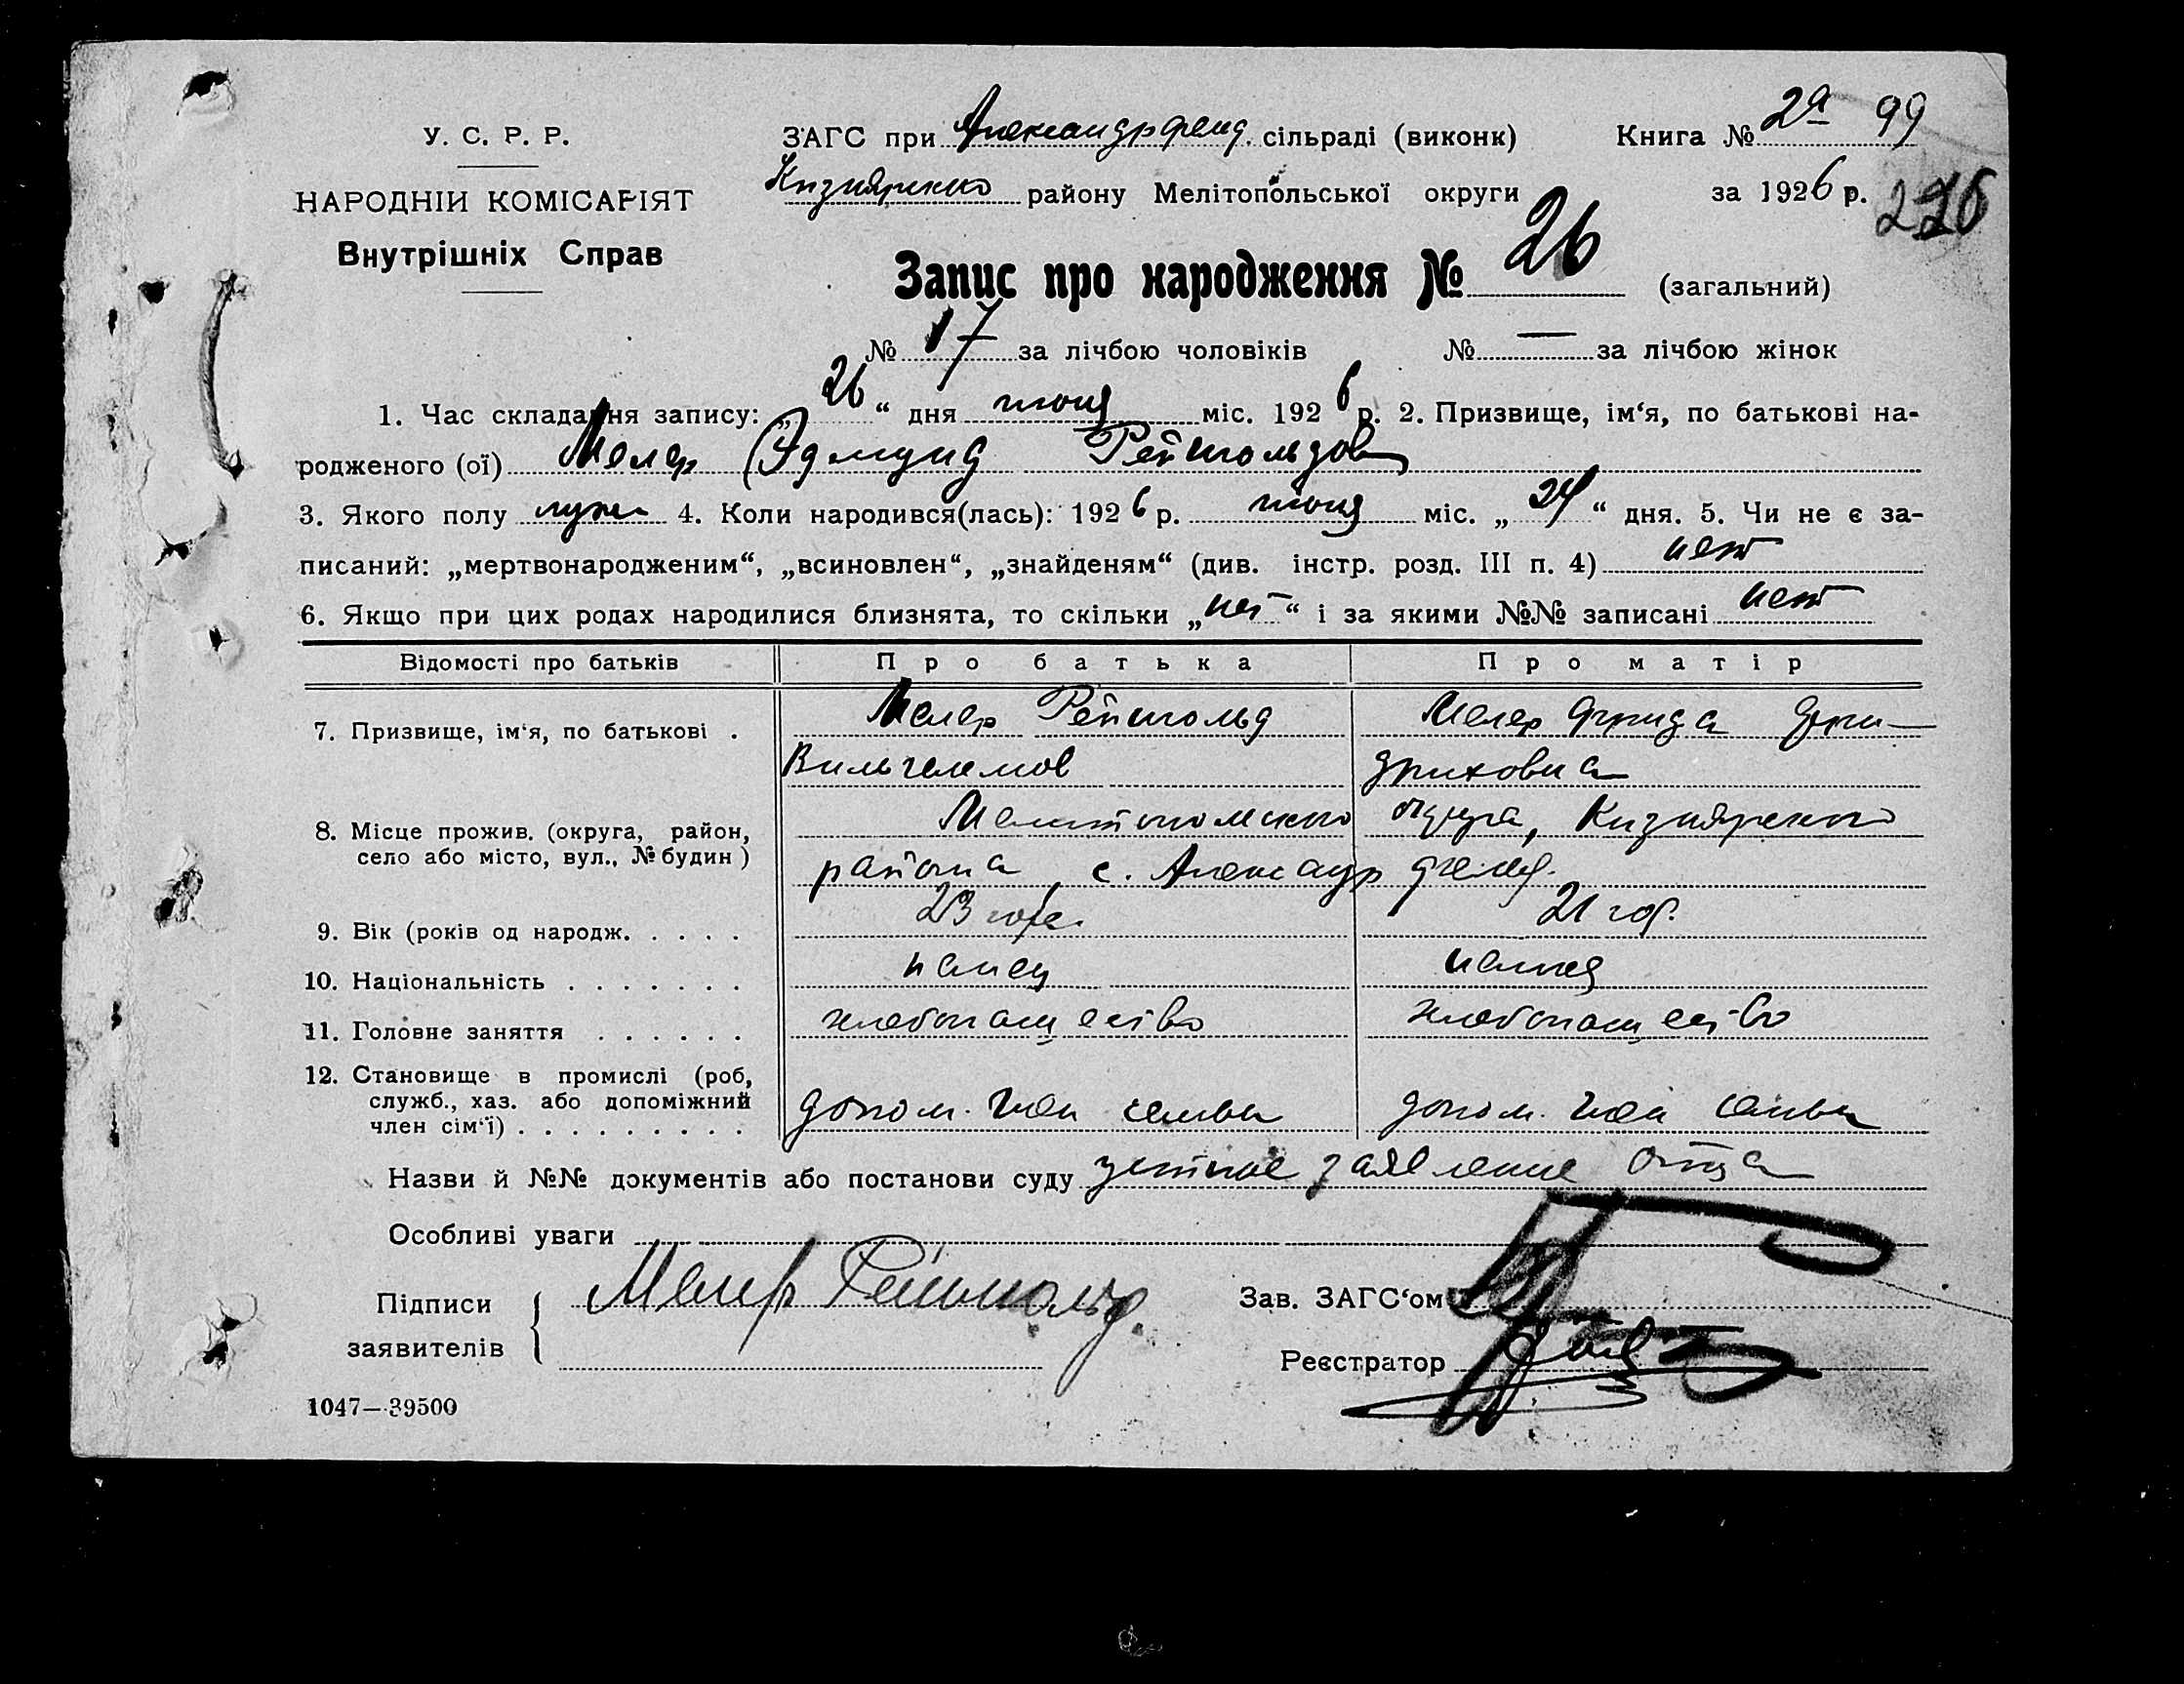 2а 99
У. С. Р. Р. ЗАГС при Александрфельд. сільраді (виконк) Книга №
НАРОДНІЙ КОМІСАРІЯТ района Мелітопольської округи за 1926 р. 226
Внутрішніх Справ
Запис про народження № 26 (загальний)
№ 17 за лічбою чоловіків № — за лічбою жінок
1. Час складання запису: „26“ дня июня міс. 1926 р. 2. Призвище, ім‘я, по батькові на-
родженого (ої) Мелер Эдмунд Рейнгольдов
3. Якого полу муж 4. Коли народився(лась): 1926 р. июня міс. „24“ дня. 5. Чи не є за-
писаний: „мертвонародженим“, „всиновлен“, „знайденям“ (див. інстр. розд. III п. 4) нет
6. Якщо при цих родах народилися близнята, то скільки „нет“ і за якими №№ записані нет
Відомості про батьків Про батька Про матір
7. Призвище, ім‘я, по батькові . Мелер Рейнгольд Мелер Фрида
Вильгельмов
8. Місце прожив. (округа, район, Мелитопольского округа, Кизиярского
село або місто, вул., № будин) района, с. Александрфельд.
9. Вік (років од народж. . . . . 23 года 21 год.
10. Національність . . . . . . . немец немка
11. Головне заняття . . . . . . хлебопашество хлебопашество
12. Становище в промислі (роб,
служб., хаз. або допоміжний допом. член семьи допом. член семьи
член сім‘ї) . . . . . . . . .
Назви й №№ документів або постанови суду устное заявление отца
Особливі уваги
Підписи Мелер Рейнгольд. Зав. ЗАГС‘ом
заявителів Реєстратор
1047—39500